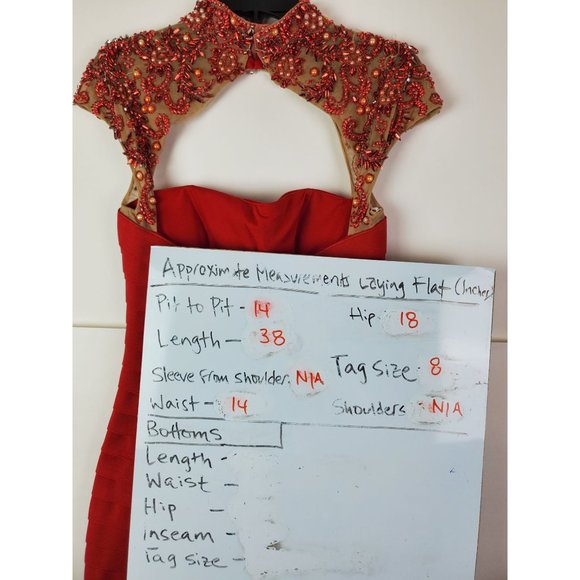 Approximate Measurements Laying Flat (Inches)
Pit to Pit - 14
Hip: 18
Length - 38
Sleeve from Shoulder: N/A
Tag Size: 8
Waist - 14
Shoulders - N/A
Bottoms
Length -
Waist -
Hip -
inseam -
Tag size -